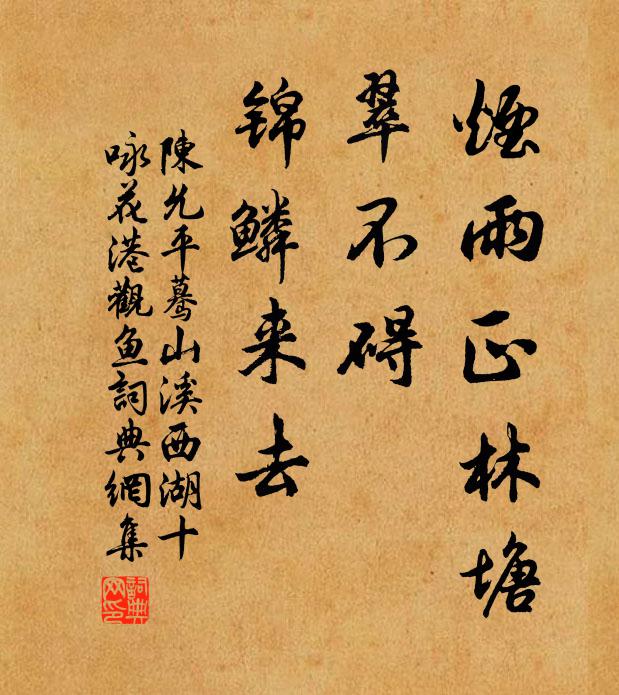 煙雨正林塘
翠不碍
锦鳞来去
陳允平驀山溪西湖十
咏花港觀鱼詞典網集
詞典
网印